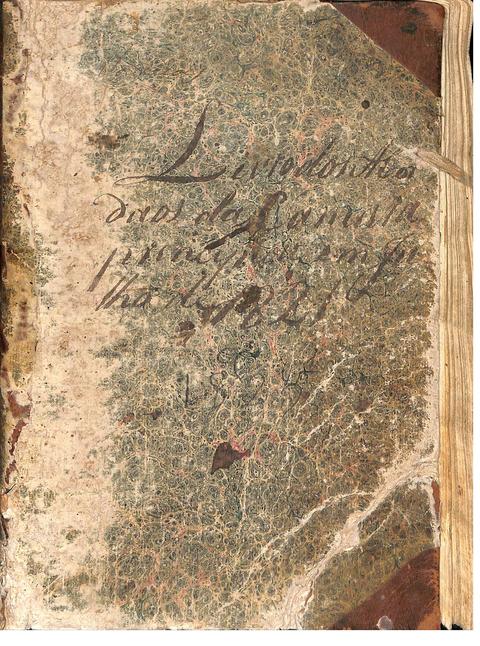 Livro dos Acor
dãos da Camera
principiado em Ju
lho de 1821